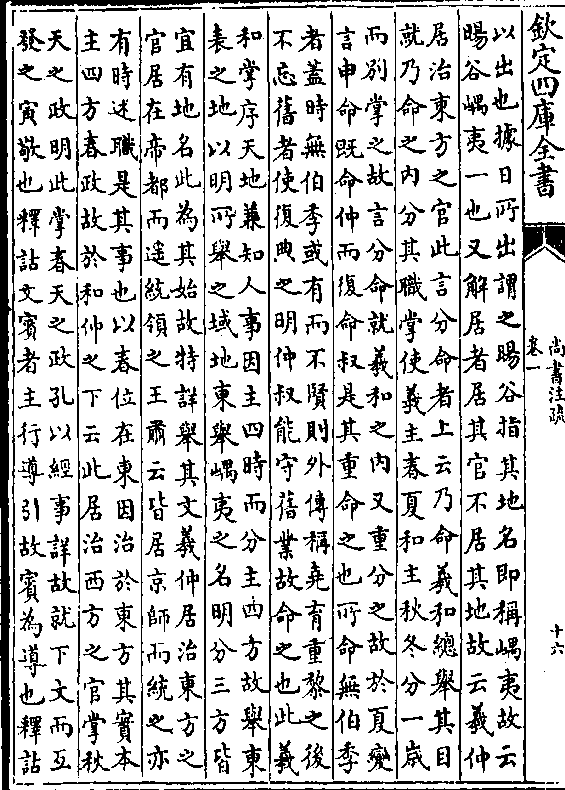 欽定四庫全書
尚書注疏
卷一
十六
以出也據日所出謂之暘谷指其地名即稱嵎夷故云
暘谷嵎夷一也又解居者居其官不居其地故云羲仲
居治東方之官此言分命者上云乃命羲和總舉其目
就乃命之內分其職掌使羲主春夏和主秋冬分一歲
而別掌之故言分命就羲和之內又重分之故於夏變
言申命既命仲而復命叔是其重命之也所命無伯季
者蓋時無伯季或有而不賢則外傳稱堯育重黎之後
不忘舊者使復典之明仲叔能守舊業故命之也此羲
和掌序天地兼知人事因主四時而分主四方故舉東
表之地以明所舉之域地東舉嵎夷之名明分三方皆
宜有地名此為其始故特詳舉其文羲仲居治東方之
官居在帝都而遥統領之王肅云皆居京師而統之亦
有時述職是其事也以春位在東因治於東方其實本
主四方春政故於和仲之下云此居治西方之官掌秋
天之政明此掌春天之政孔以經事詳故就下文而互
發之寅敬也釋詁文賓者主行導引故賓為導也釋詁